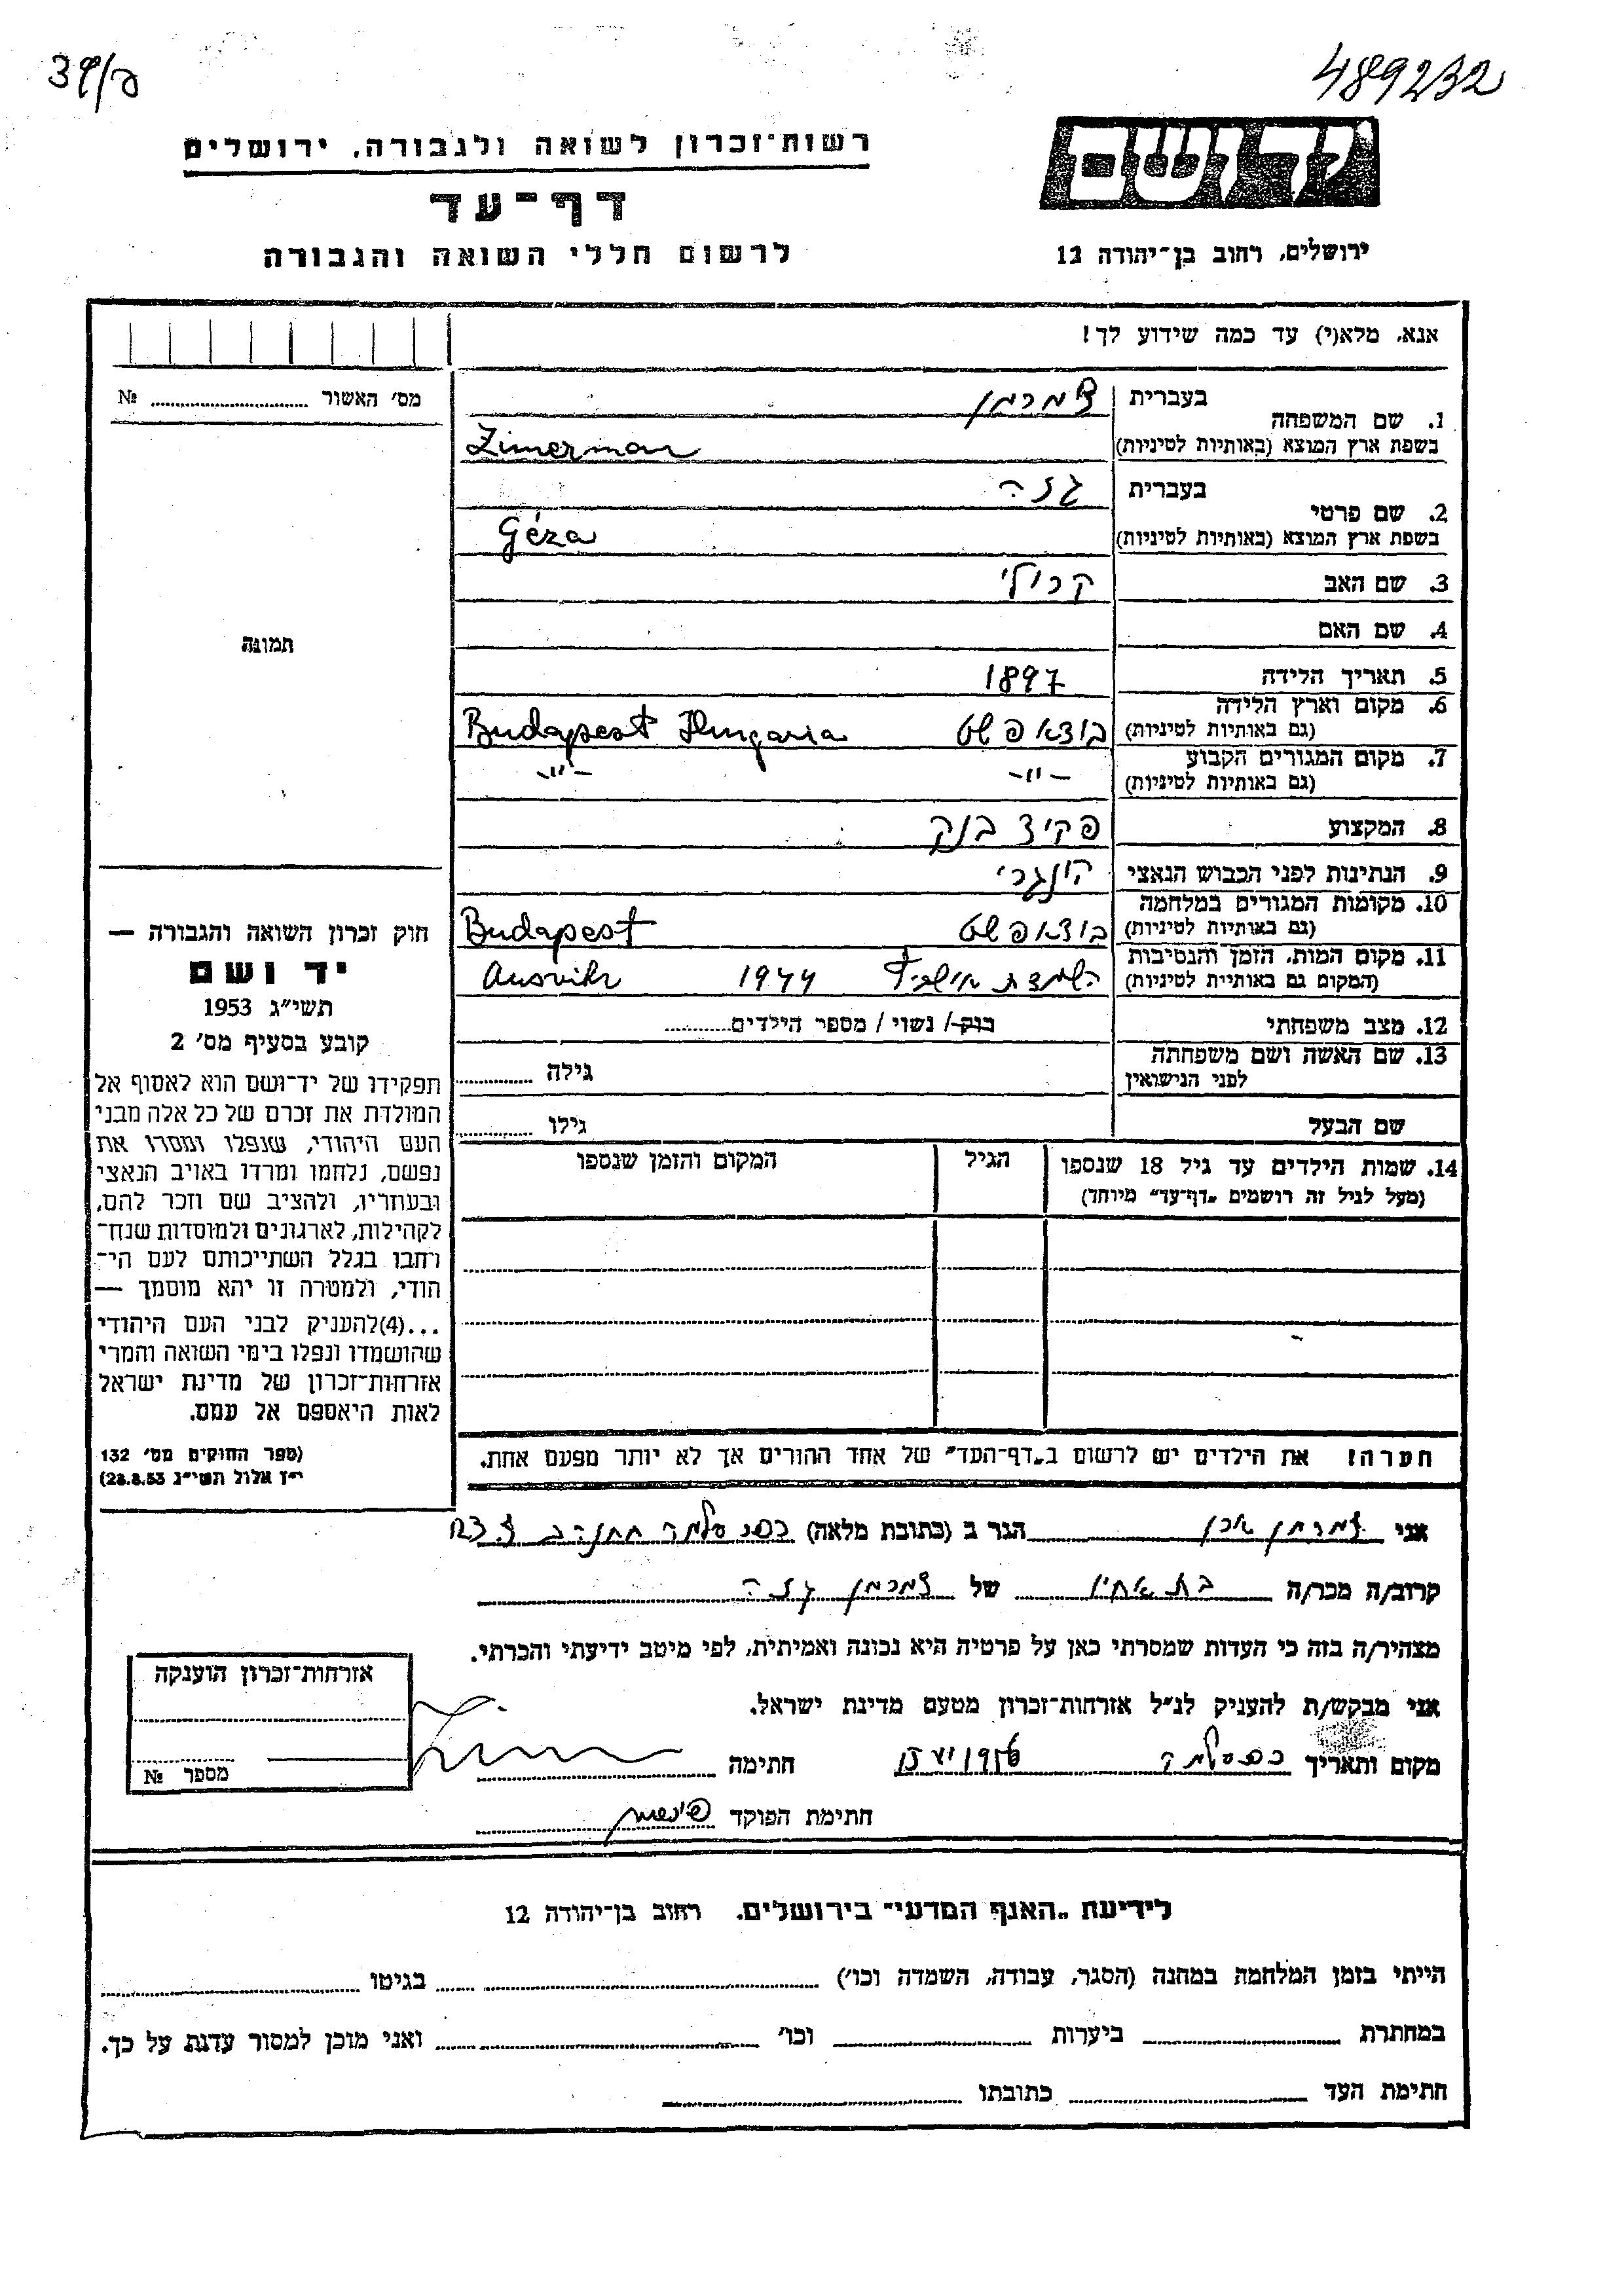 39/ק
489232
רשות־זכרון לשואה ולגבורה, ירושלים
דף־עד
לרשום חללי השואה והגבורה
ידושם
ירושלים, רחוב בן־יהודה 12
אנא, מלא(י) עד כמה שידוע לך!
מס׳ האשור № 
1. שם המשפחה בעברית צמרמן
בשפת ארץ המוצא (באותיות לטיניות) Zimerman
2. שם פרטי בעברית גזה
בשפת ארץ המוצא (באותיות לטיניות) Géza
3. שם האב קרולי
4. שם האם
5. תאריך הלידה 1897
6. מקום וארץ הלידה (גם באותיות לטיניות) בודאפשט Budapest Hungaria
7. מקום המגורים הקבוע (גם באותיות לטיניות) -"- -"-
8. המקצוע פקיד בנק
9. הנתינות לפני הכבוש הנאצי הונגרי
10. מקומות המגורים במלחמה (גם באותיות לטיניות) בודאפשט Budapest
11. מקום המות, הזמן והנסיבות (המקום גם באותיית לטיניות) 1944 Ausvihz
12. מצב משפחתי רוק / נשוי / מספר הילדים
13. שם האשה ושם משפחתה לפני הנישואין גילה
שם הבעל גילו
14. שמות הילדים עד גיל 18 שנספו הגיל המקום והזמן שנספו
(מעל לגיל זה רושמים „דף־עד" מיוחד)
תמונה
חוק זכרון השואה והגבורה —
יד ושם
תשי״ג 1953
קובע בסעיף מס׳ 2
תפקידו של יד־ושם הוא לאסוף אל
המולדת את זכרם של כל אלה מבני
העם היהודי, שנפלו ומסרו את
נפשם, נלחמו ומרדו באויב הנאצי
ובעוזריו, ולהציב שם וזכר להם,
לקהילות, לארגונים ולמוסדות שנח־
רחבו בגלל השתייכותם לעם הי־
הודי, ולמטרה זו יהא מוסמך —
...(4)להעניק לבני העם היהודי
שהושמדו ונפלו בימי השואה והמרי
אזרחות־זכרון של מדינת ישראל
לאות היאספם אל עמם.
(ספר החוקים מס׳ 132
י״ז אלול תשי״ג 28.8.53)
הערה! את הילדים יש לרשום ב„דף־העד" של אחד ההורים אך לא יותר מפעם אחת.
אני צמרמן הגר ב (כתובת מלאה)
קרוב/ה מכר/ה בת אחיו של צמרמן גזה
מצהיר/ה בזה כי העדות שמסרתי כאן על פרטיה היא נכונה ואמיתית, לפי מיטב ידיעתי והכרתי.
אני מבקש/ת להעניק לנ״ל אזרחות־זכרון מטעם מדינת ישראל.
מקום ותאריך חתימה
חתימת הפוקד
אזרחות־זכרון הוענקה
מספר №
לידיעת „האגף המדעי" בירושלים, רחוב בן־יהודה 12
הייתי בזמן המלחמה במחנה (הסגר, עבודה, השמדה וכו׳) בגיטו
במחתרת ביערות וכו׳ ואני מוכן למסור עדות על כך.
חתימת העד כתובתו